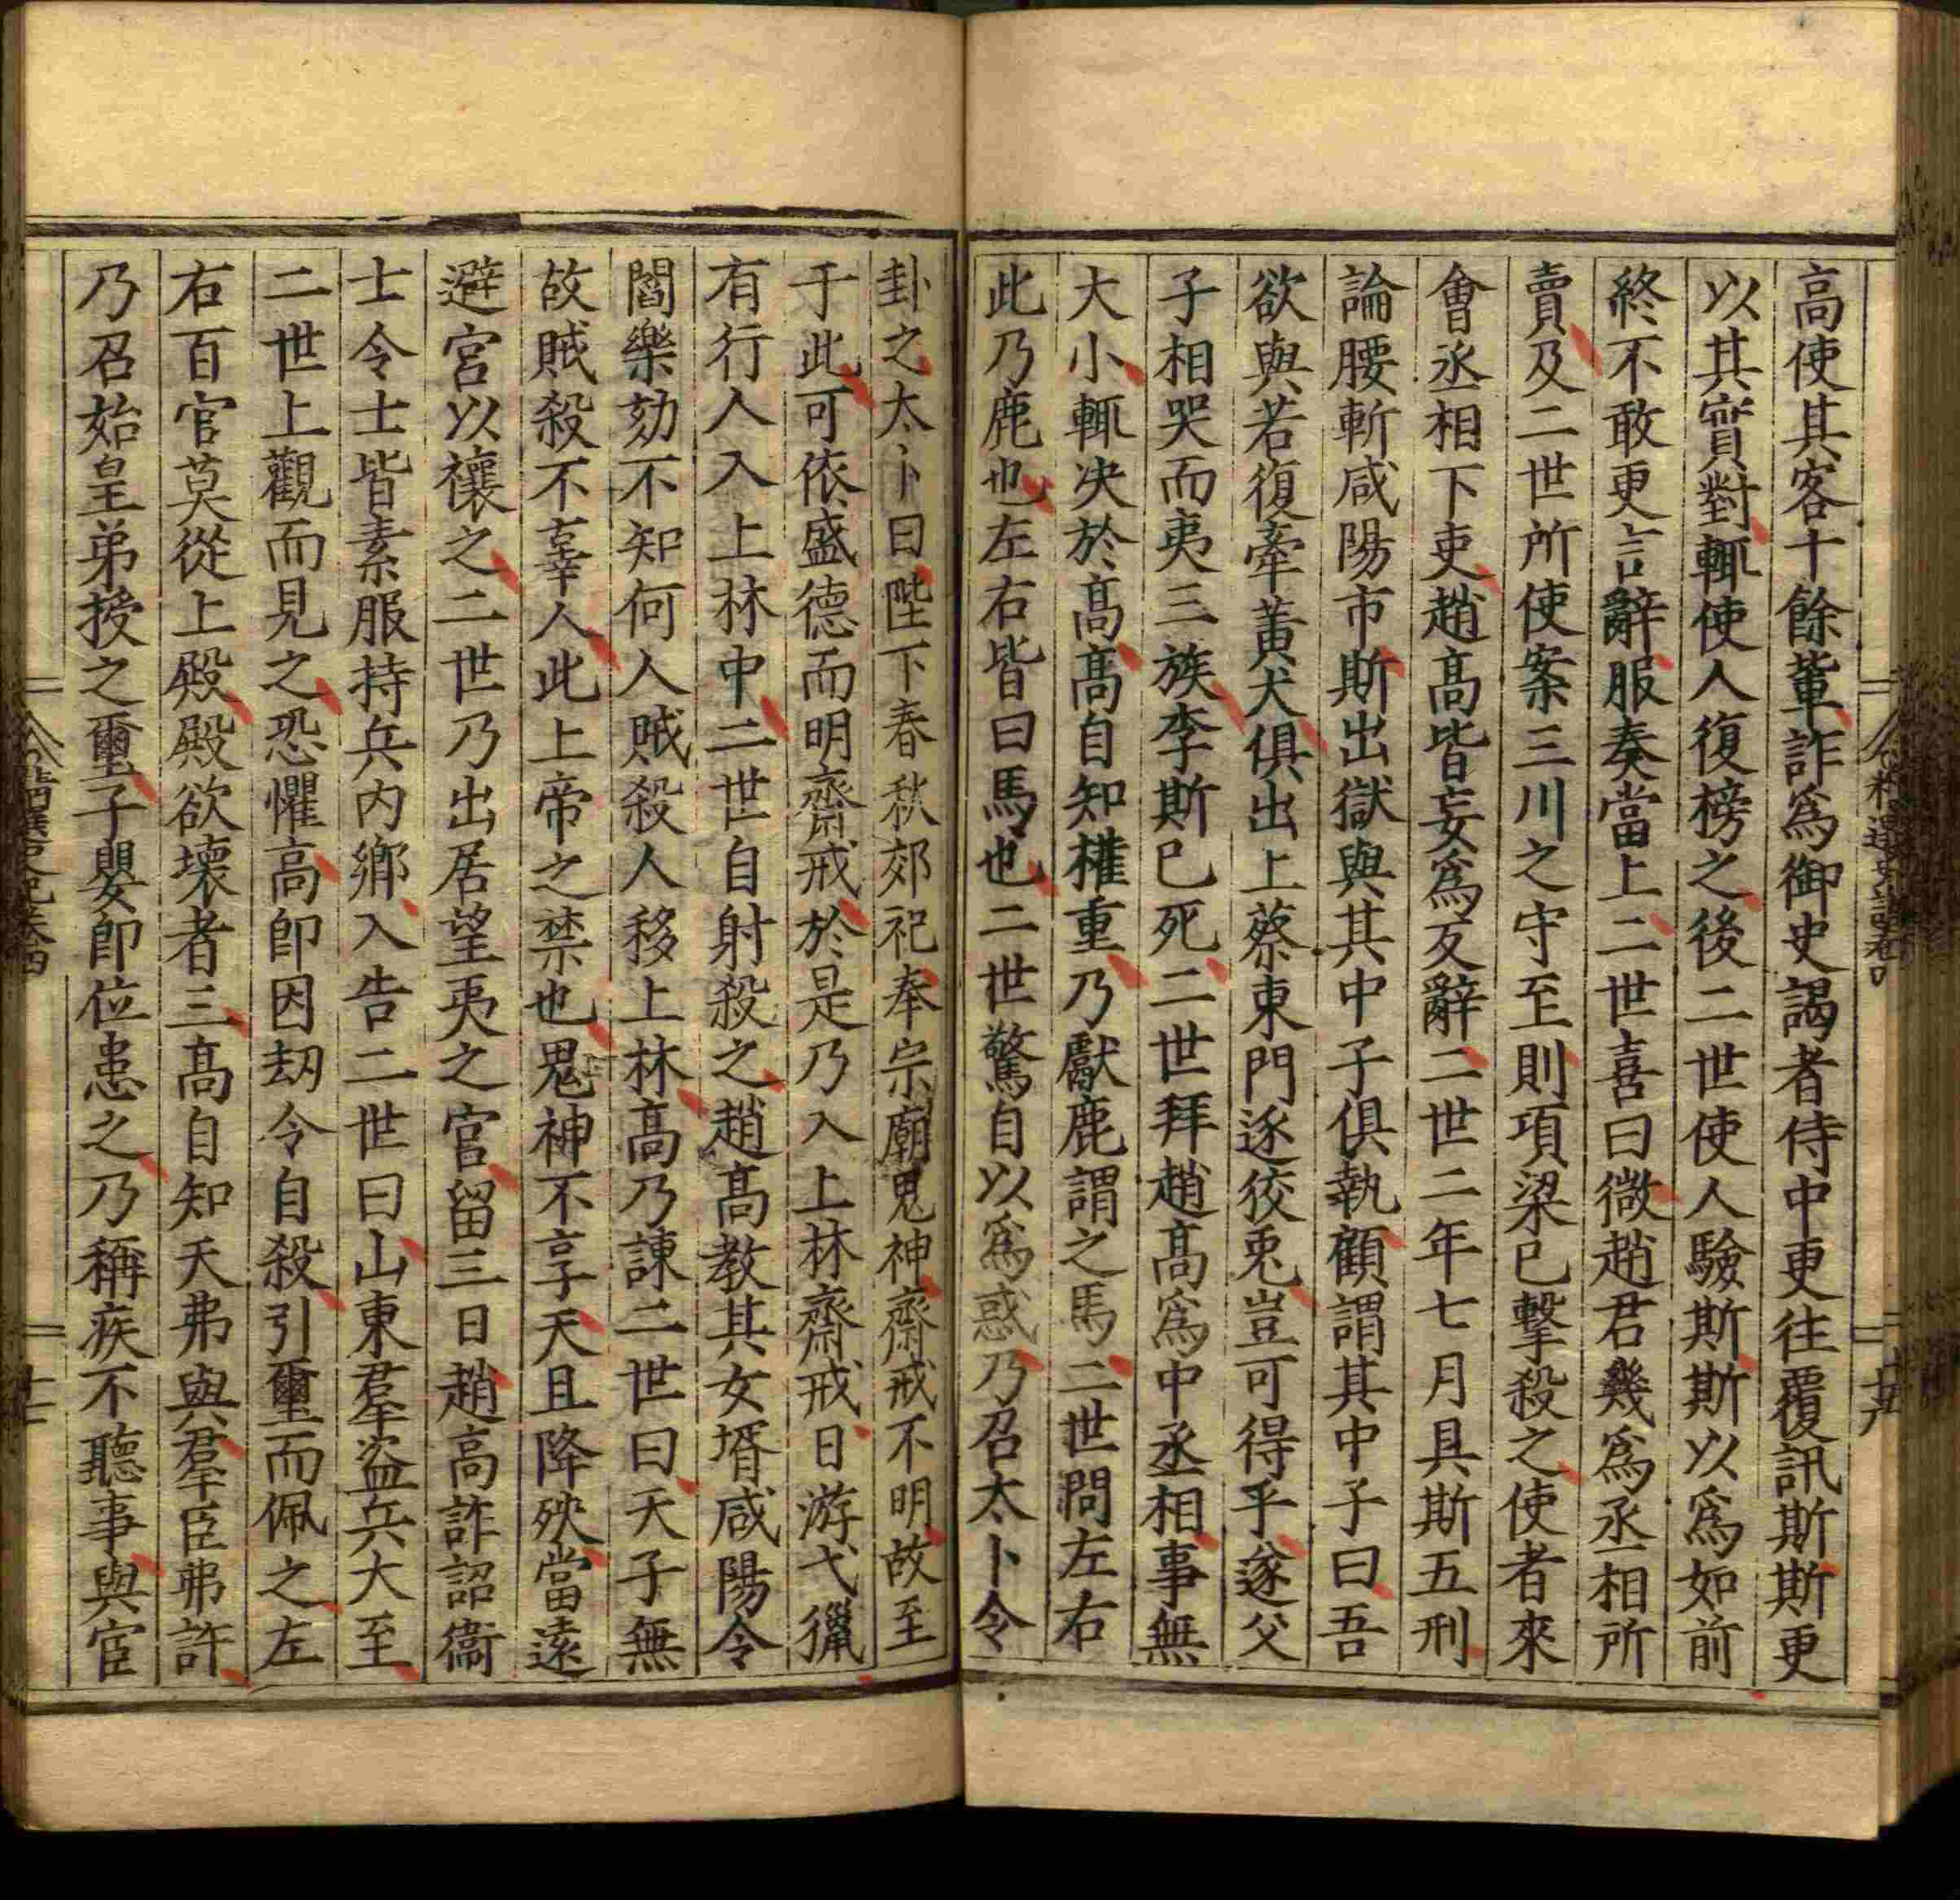 高使其客十餘輩詐爲御史謁者侍中更往覆訊斯斯更
以其實對輒使人復榜之後二世使人驗斯斯以爲如前
終不敢更言辭服奏當上二世喜曰微趙君幾爲丞相所
賣及二世所使案三川之守至則項梁已擊殺之使者來
會丞相下吏趙高皆妄爲反辭二世二年七月具斯五刑
論腰斬咸陽市斯出獄與其中子俱執顧謂其中子曰吾
欲與若復牽黃犬俱出上蔡東門逐狡兎豈可得乎遂父
子相哭而夷三族李斯已死二世拜趙高爲中丞相事無
大小輒決於高高自知權重乃獻鹿謂之馬二世問左右
此乃鹿也左右皆曰馬也二世驚自以爲惑乃召太卜令
卦之太卜曰陛下春秋郊祀奉宗廟鬼神齋戒不明故至
于此可依盛德而明齋戒於是乃入上林齋戒日游弋獵
有行人入上林中二世自射殺之趙高教其女壻咸陽令
閻樂劾不知何人賊殺人移上林高乃諫二世曰天子無
故賊殺不辜人此上帝之禁也鬼神不享天且降殃當遠
避宮以禳之二世乃出居望夷之宮留三日趙高詐詔衞
士令士皆素服持兵內鄉入告二世曰山東羣盜兵大至
二世上觀而見之恐懼高卽因刼令自殺引璽而佩之左
右百官莫從上殿殿欲壞者三高自知天弗與羣臣弗許
乃召始皇弟授之璽子嬰卽位患之乃稱疾不聽事與宦